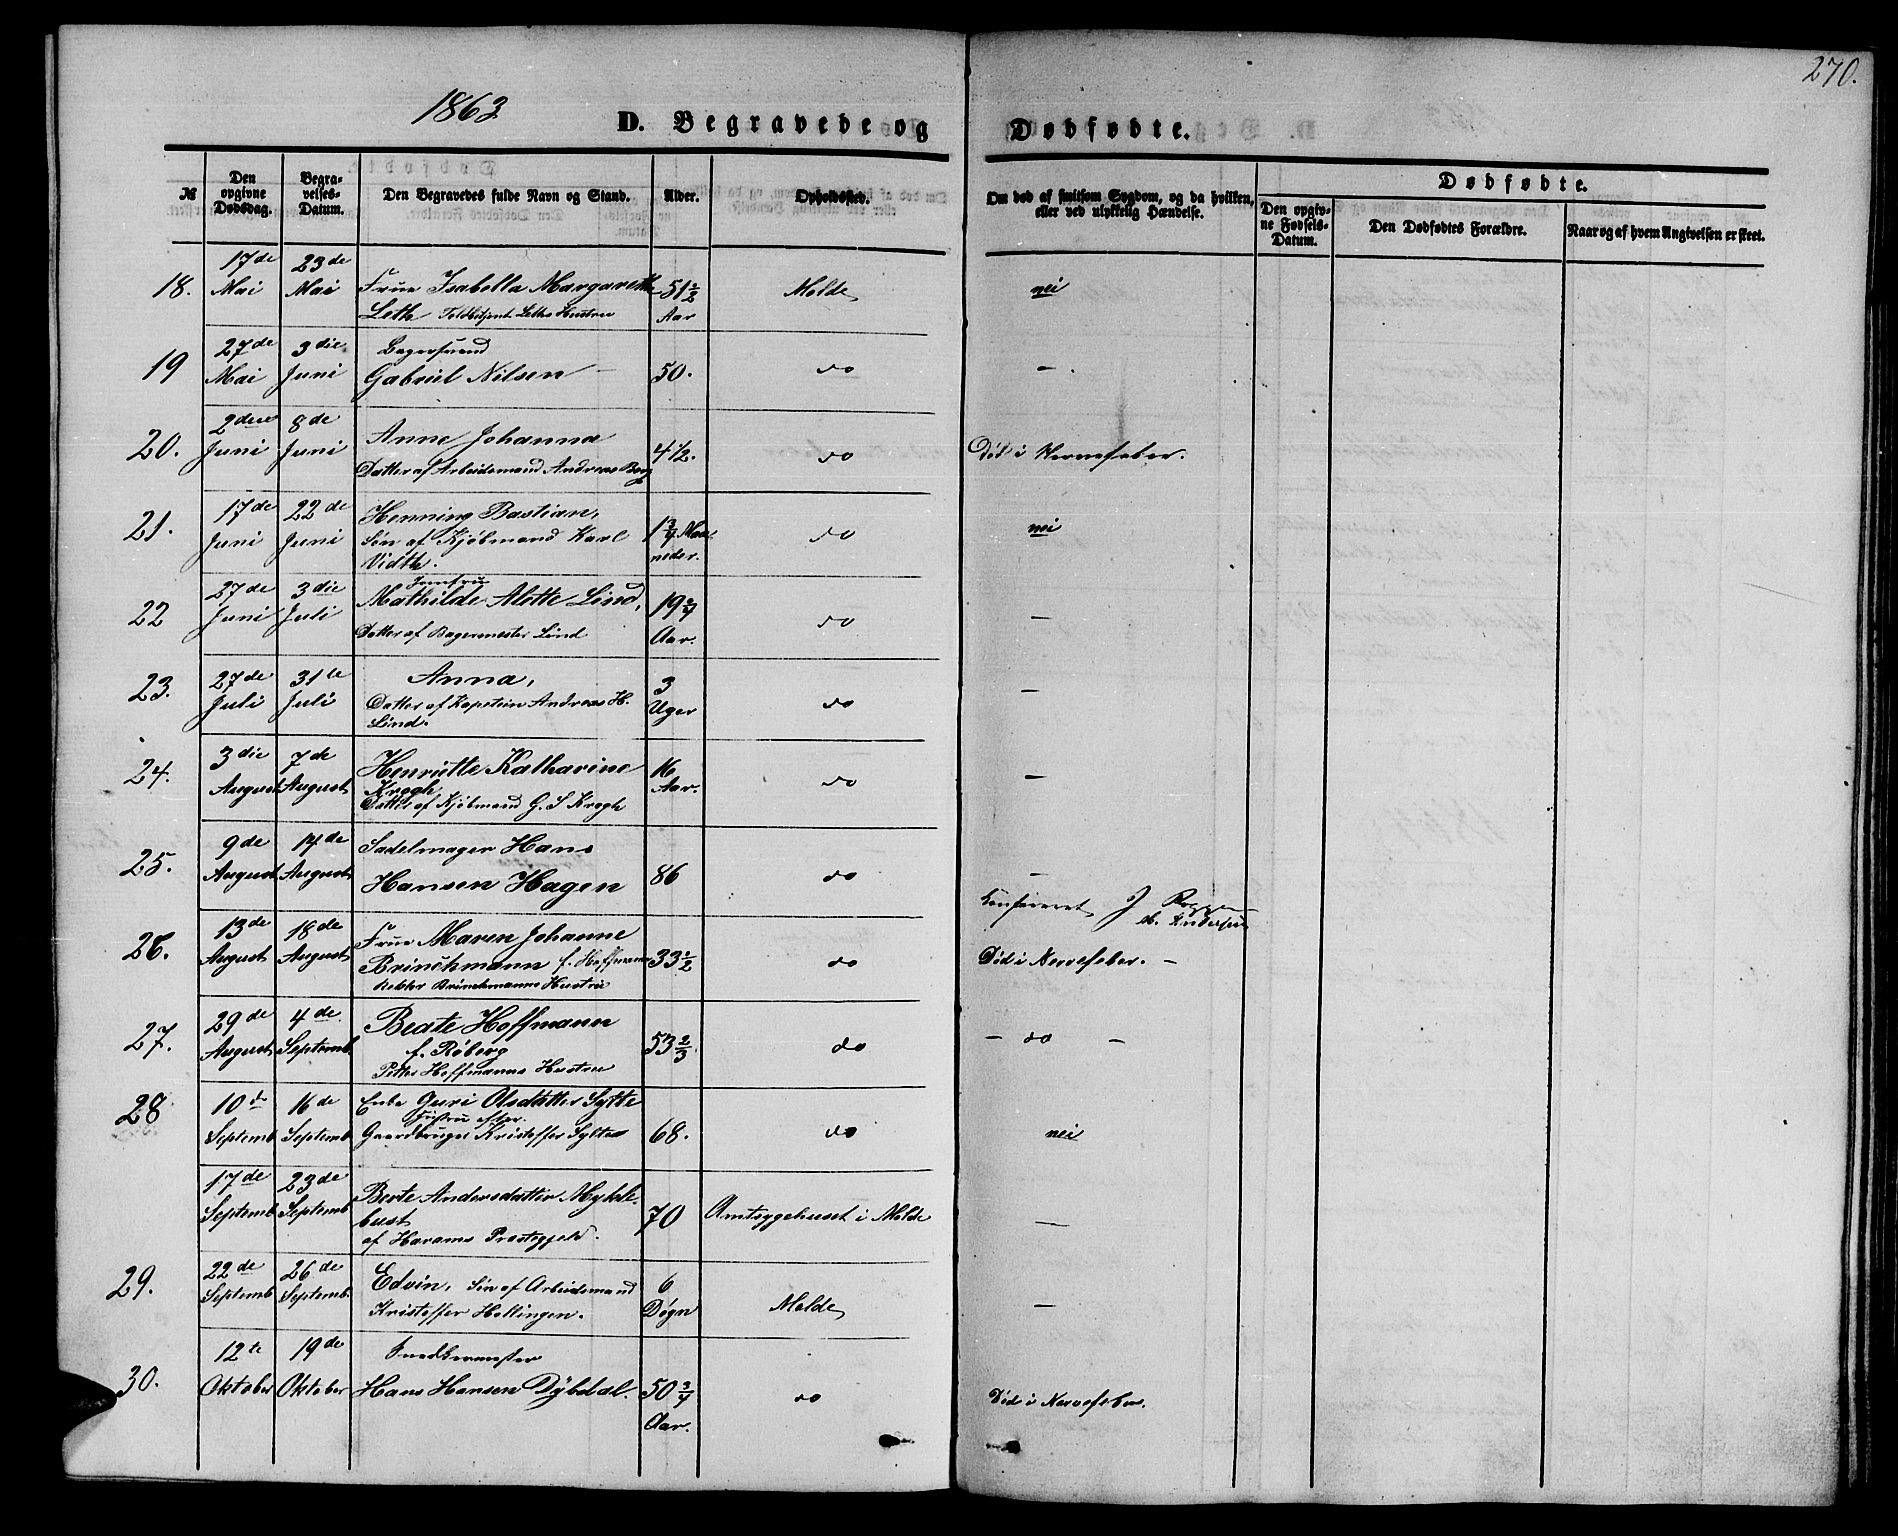 270.
1863
D. Begravede og Dødfødte.
№
Den opgivne Dødsdag.
Begravelses-Datum.
Den Begravedes fulde Navn og Stand.
Alder.
Opholdssted.
Om død af smitsom Sygdom, og da hvilken, eller ved ulykkelig Hændelse.
Dødfødte.
Den opgivne Fødsels-Datum.
Den Dødfødtes Forældre.
Naar og af hvem Angivelsen er skeet.
18. 17de Mai 23de Mai Frue Isabella Margarethe 51 1/2 Aar Molde nei
Leth Toldbetjent Leths Hustru
19 27de Mai 3die Juni Bagersvend
Gabriel Nilsen – 50. do – .
20. 2den Juni 8de Juni Anne Johanna 4 1/2. do Død i Nervefeber.
Datter af Arbeidsmand Andreas Berg
21. 17de Juni 22de Juni Henning Bastian, Maaneder. do nei
Søn af Kjøbmand Karl
Vidth.
22 27de Juni 3die Juli Jomfru
Mathilde Alette Lind, 19 Aar. do –
Datter af Bagermester Lind
23. 27de Juli 31te Juli Anna, 3 Uger do –
Datter af Kaptein Andreas H.
Lind.
24. 3die August 7de August Henriette Katharine 16 Aar. do –
Krogh
Datter af Kjøbmand G. S Krogh
25. 9de August 14de August Sadelmager Hans
Hansen Hagen 86 do –
Konfereret J
26. 13de August 18de August Frue Maren Johanne
Brinchmann f. Hoffmann 33 1/2 do Død i Nervefeber. –
Rektor Brinchmanns Hustru
27. 29de August 4de Septemb. Beate Hoffmann 53 2/3. do – do –
f. Røberg
Petter Hoffmanns Hustru
28 10de Septemb 16de Septemb Enke Guri Olsdatter Sylte 68. do nei
efter
Gaardbruger Kristoffer Sylte
17de Septemb 23de Septemb Berte Andersdatter Mykle-
bust 70 Amtsygehuset i Molde –
af Harams Prestegjeld.
29. 22de Septemb 26de Septemb. Edvin, Søn af Arbeidsmand 6 Døgn Molde –
Kristoffer Hollingen.
30. 12te Oktober 19de Oktober Snedkermester
Hans Hansen Dybdal. 50 3/4 Aar. do Død i Nervefeber.